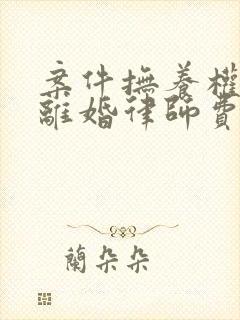 案件撫養權
離婚律師費
蘭朵朵